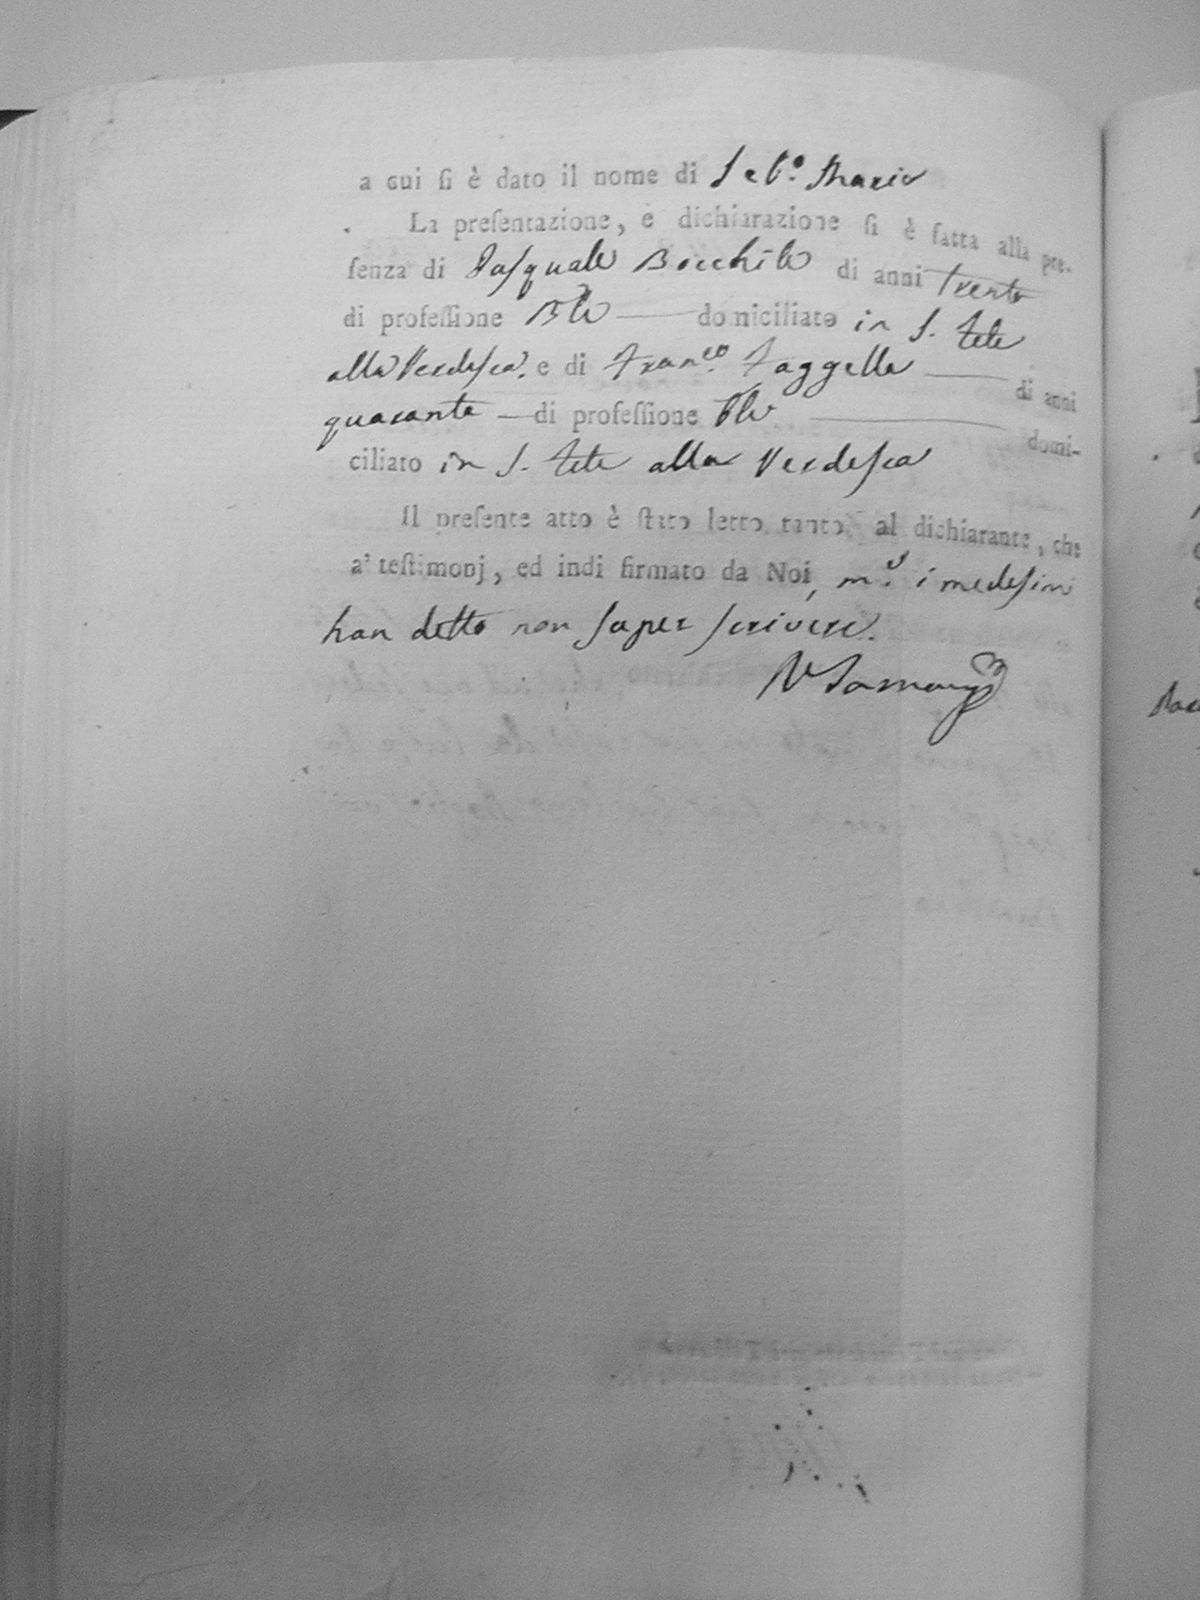 a cui ſi è dato il nome di Seb.º Maria
La preſentazione, e dichiarazione ſi è fatta alla pre-
ſenza di Paſquale Bocchile di anni trenta
di profeſſione Ble domiciliato in S. Tete
alla Verdeſca. e di Fran.co Faggella di anni
quaranta di profeſſione Ble domi-
ciliato in S. Tete alla Verdeſca
Il preſente atto è ſtato letto tanto al dichiarante, che
a' teſtimonj, ed indi firmato da Noi, i medeſimi
han detto non ſaper ſcrivere.